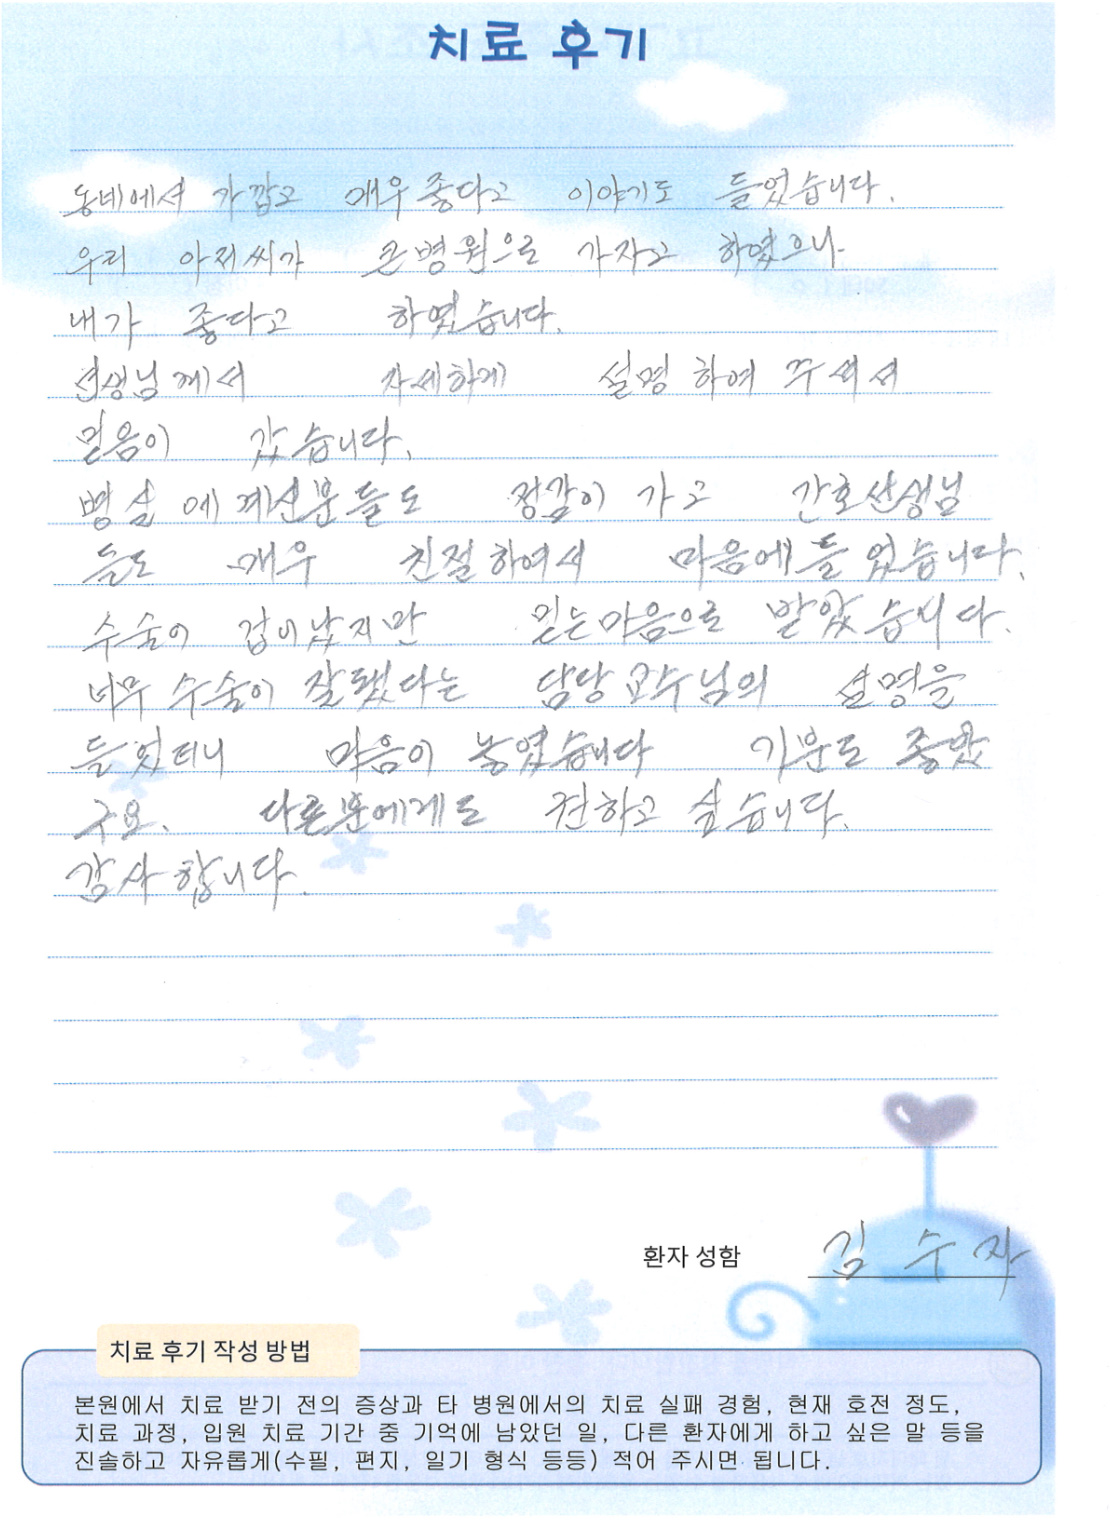 치료 후기
동네에서 가깝고 매우 좋다고 이야기도 들었습니다.
우리 아저씨가 큰병원으로 가자고 하였으나
내가 좋다고 하였습니다.
선생님께서 자세하게 설명 하여 주셔서
믿음이 갔습니다.
병실에 계신분들도 정감이 가고 간호선생님
들도 매우 친절하여서 마음에 들었습니다.
수술이 겁이났지만 믿는마음으로 받았습니다.
너무 수술이 잘됐다는 담당교수님의 설명을
들었더니 마음이 놓였습니다 기분도 좋았
구요. 다른분에게도 권하고 싶습니다.
감사합니다.
환자 성함 김수자
치료 후기 작성 방법
본원에서 치료 받기 전의 증상과 타 병원에서의 치료 실패 경험, 현재 호전 정도,
치료 과정, 입원 치료 기간 중 기억에 남았던 일, 다른 환자에게 하고 싶은 말 등을
진솔하고 자유롭게(수필, 편지, 일기 형식 등등) 적어 주시면 됩니다.